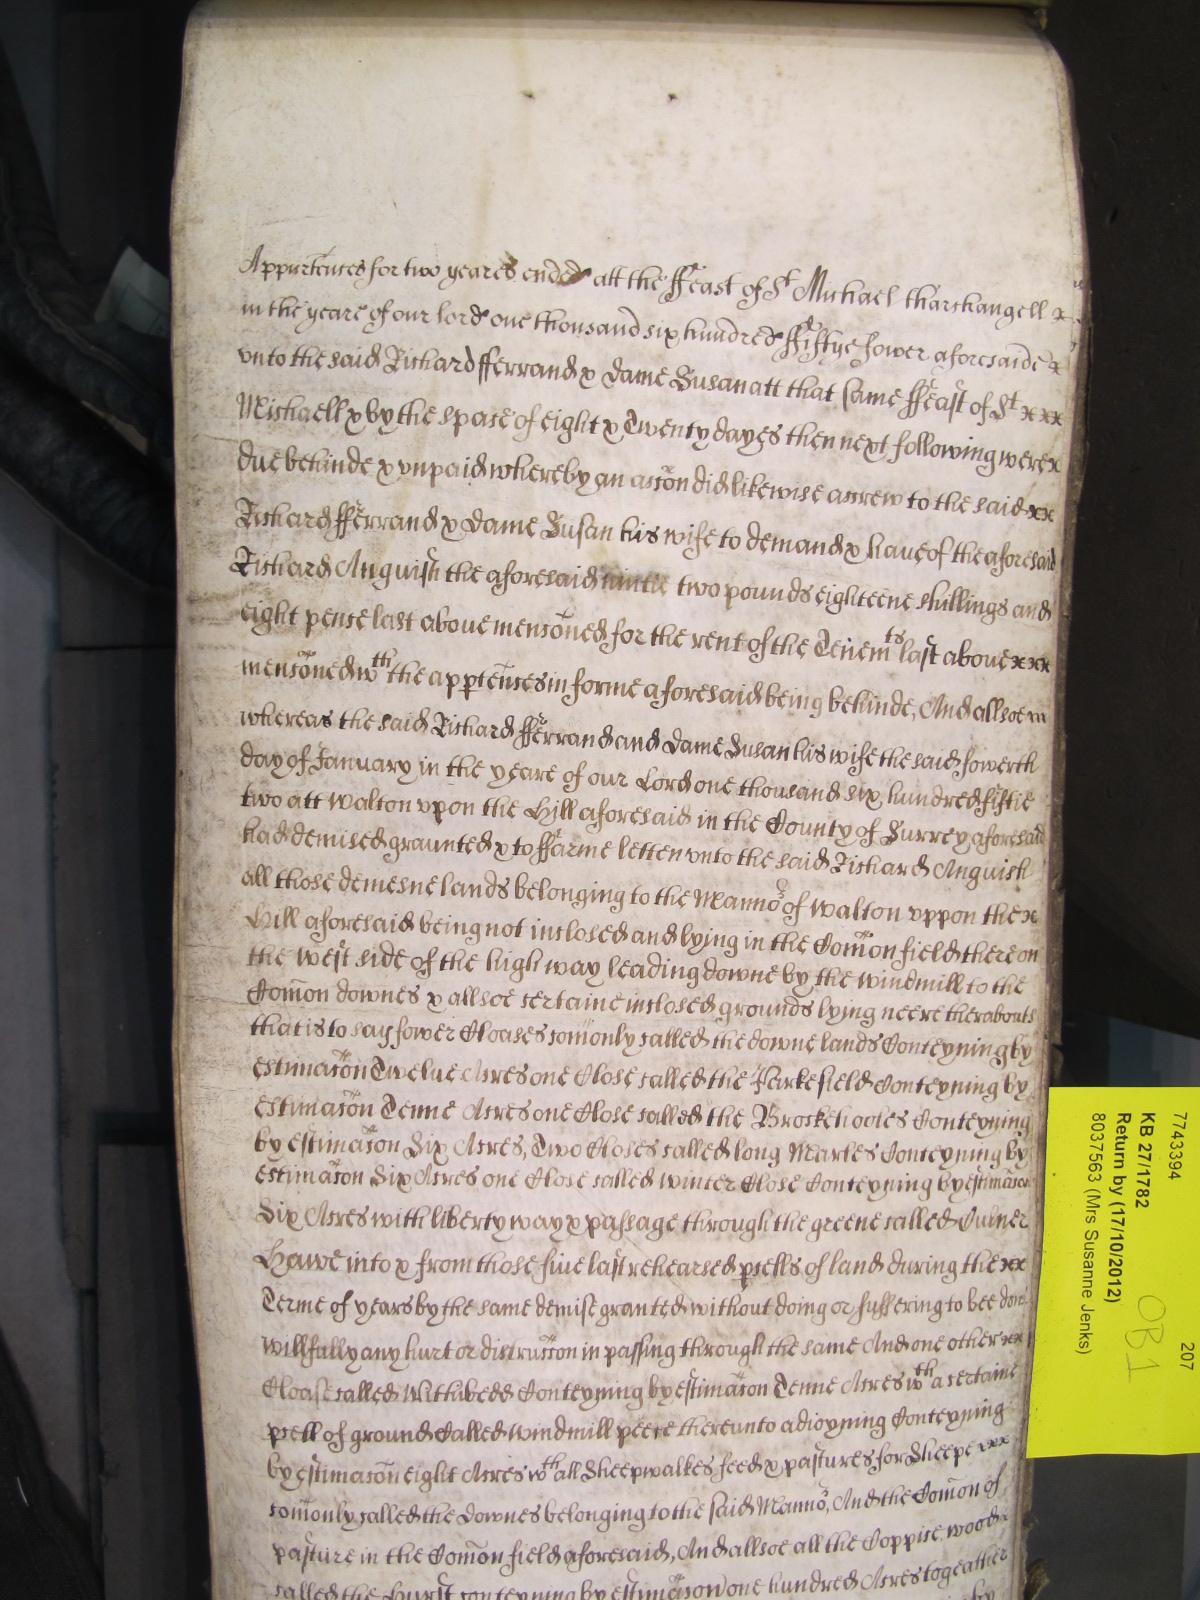 Appurten̄ces for two yeares ended att the ffeast of St Michael tharchangell x
in the yeare of our lord one thousand six hundred ffiftye fower aforesaide x
vnto the said Richard fferrand x dame Susan att that same ffeast of St x x x
Michaell x by the space of eight x Twenty dayes then next following were x
due behinde x vnpaid whereby an acc̄on did likewise accrew to the said xx
Richard fferrand x dame Susan his wife to demand x haue of the aforesaid
Richard Anguish the aforesaid two pounds eighteene shillings and
eight pence last aboue menc̄oned for the rent of the Tenemts last aboue xxx
menc̄oned wth the appten̄ces in forme aforesaid being behinde, And allsoe
whereas the said Richard fferrand and dame Susan his wife the said fowerth
day of January in the yeare of our Lord one thousand six hundred fiftie
two att Walton vpon the Hill aforesaid in the County of Surrey aforesaid
had demised graunted x to ffarme letten vnto the said Richard Anguish
all those demesne lands belonging to the Manno of Walton vppon the x
Hill aforesaid being not inclosed and lying in the Com̄on field there on
the west side of the high way leading downe by the windmill to the
Com̄on downes x allsoe certaine inclosed grounds lying neere therabouts
that is to say fower Cloases com̄only called the downe lands Conteyning by
estimac̄on Twelue Acres one Close called the Parkefield Conteyning by
estimac̄on Tenne Acres one Close called the Brockehooles Conteyning
by estimac̄on Six Acres, Two Closes called long Marles Conteyning by
estimac̄on Six Acres one Close called winter Close Conteyning by estimac̄on
Six Acres with liberty way x passage through the greene called
Hawe into x from those fiue last rehearsed pcells of land during the xx
Terme of years by the same demise granted without doing or suffering to bee don
willfully any hurt or distrucc̄on in passing through the same And one other xx
Cloase called Withibedd Conteyning by estimac̄on Tenne Acres wth a certaine
pcell of ground Called windmill peece thereunto adioyning Conteyning
by estimac̄on eight Acres wth all Sheepwalkes feed x pastures for Sheepe xxx
com̄only called the Downes belonging to the said Manno, And the Com̄on of
pasture in the Com̄on field aforesaid, And allsoe all the Coppice wood
called the Hurst conteyning by estimac̄on one hundred Acres togeather
7743394 207
KB 27/1782
Return by (17/10/2012)
8037563 (Mrs Susanne Jenks)
OB1